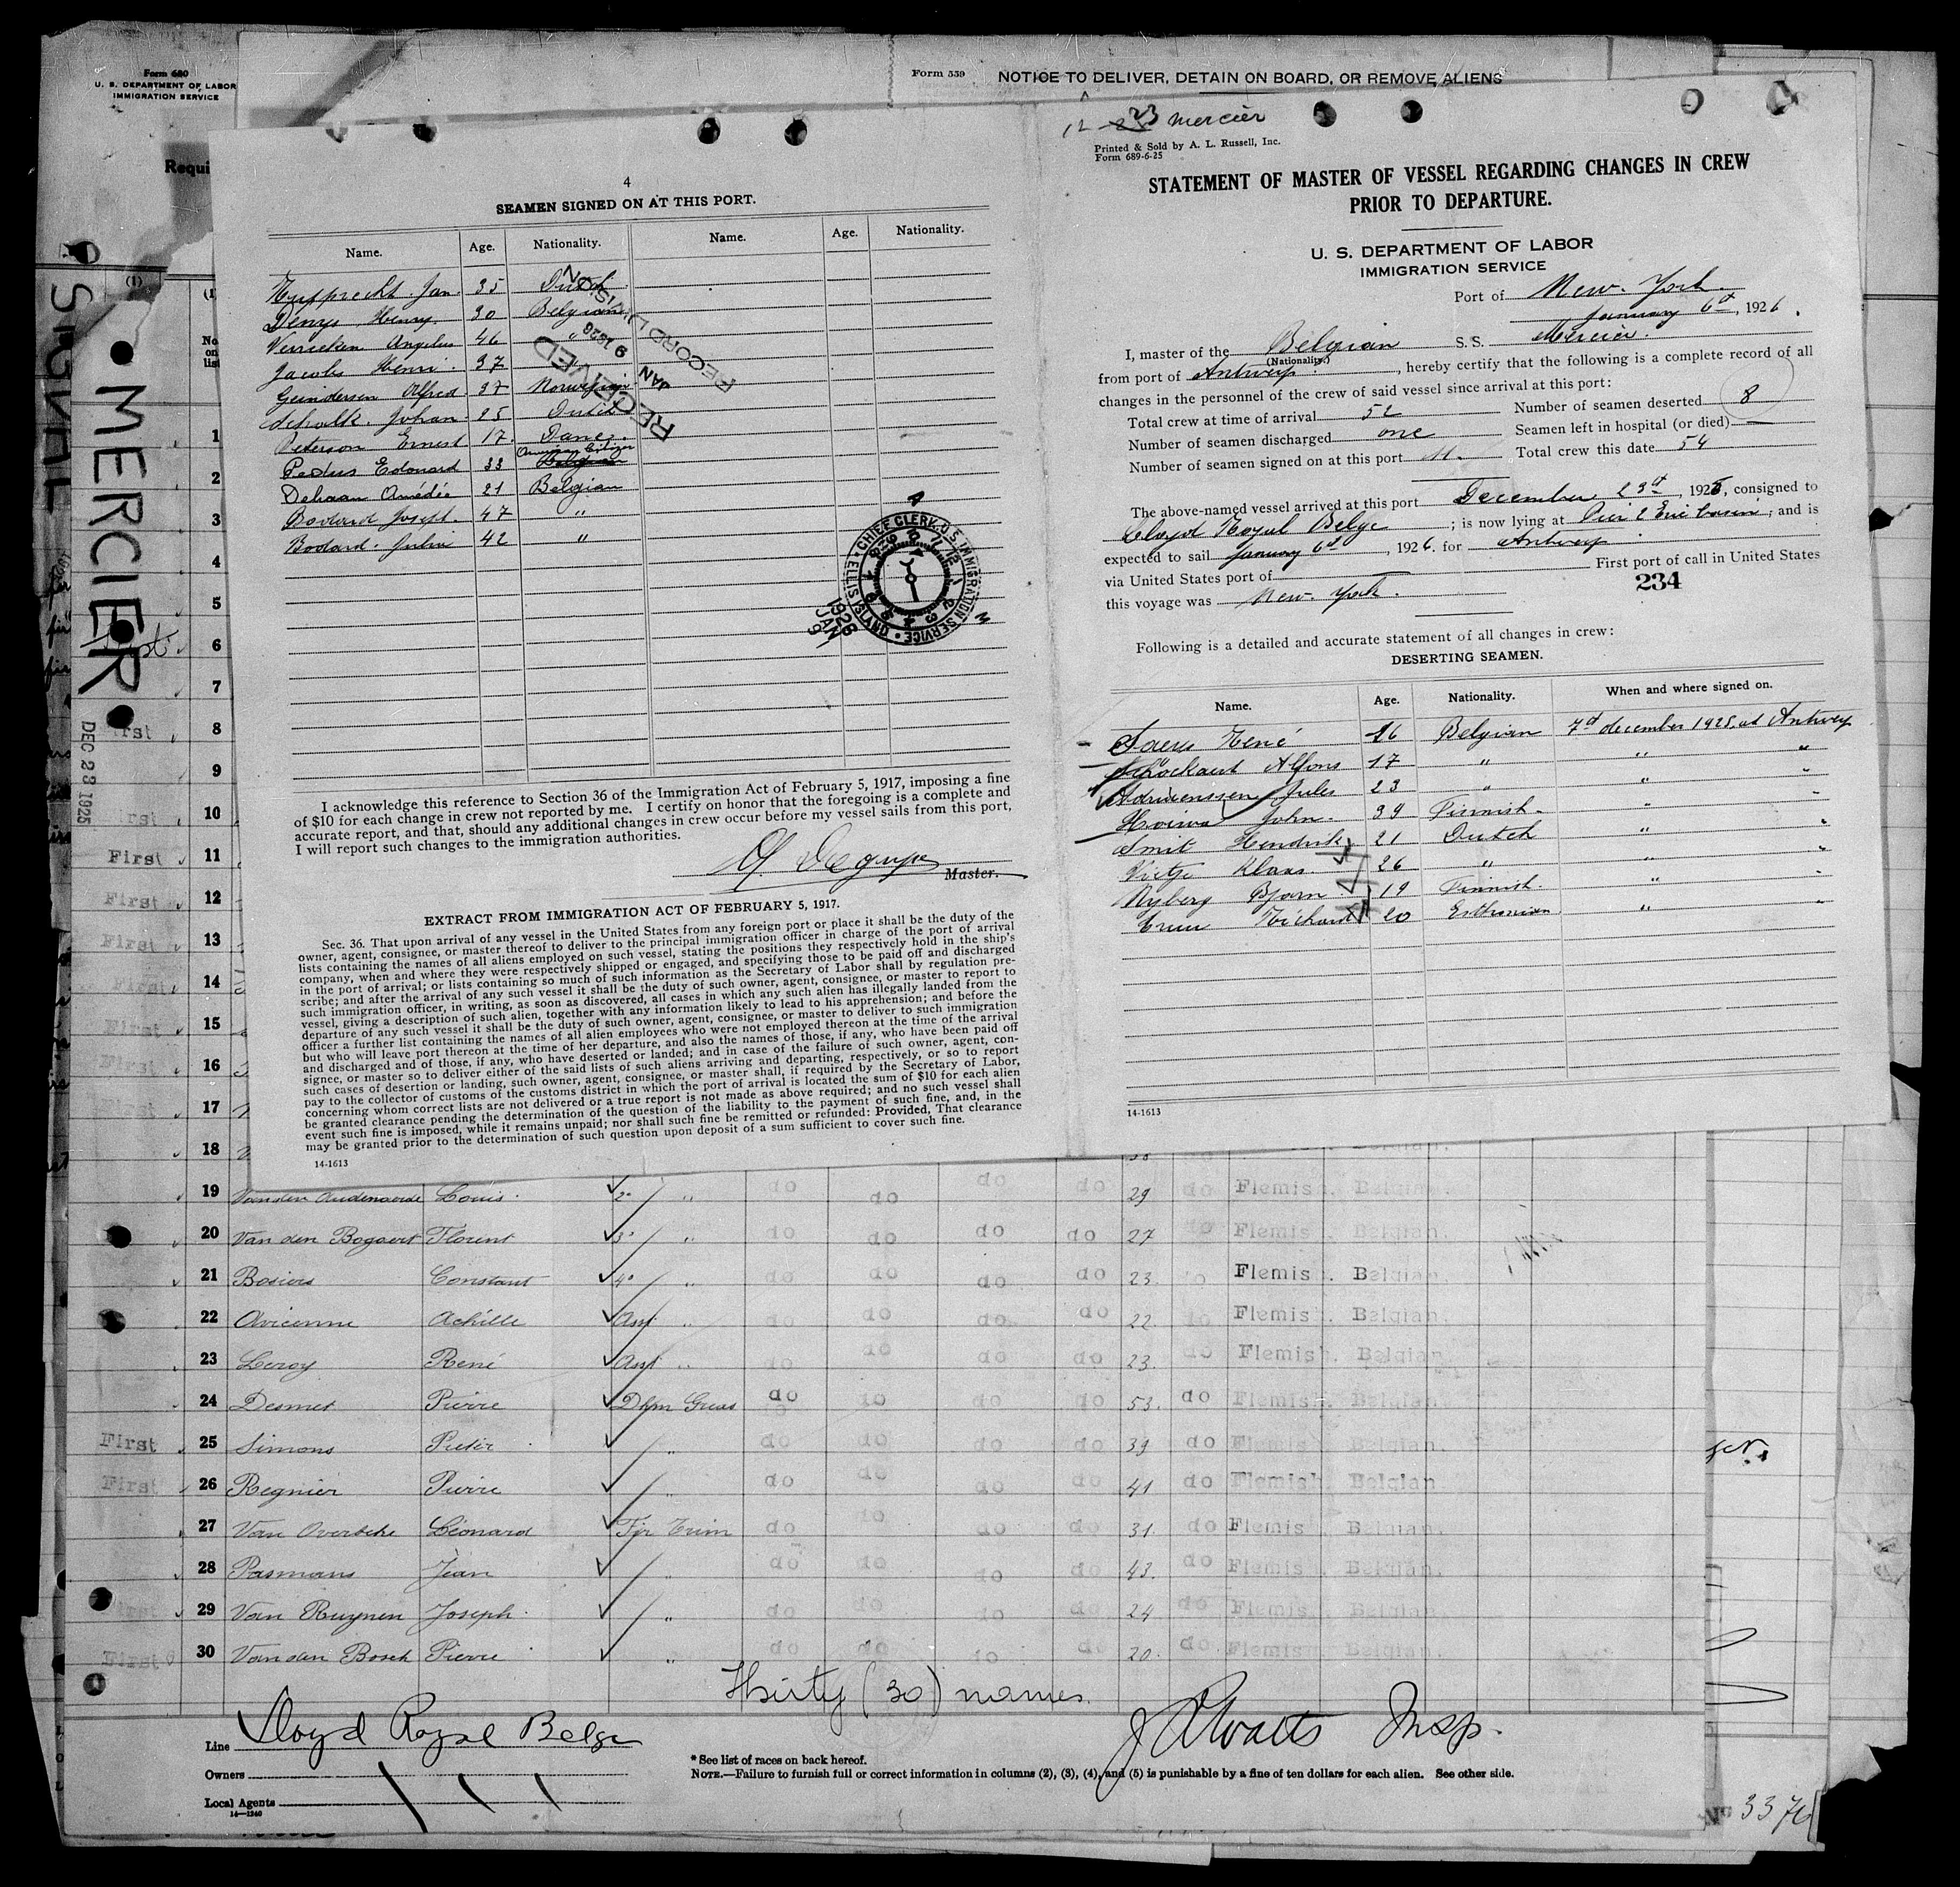 Form 680
U. S. DEPARTMENT OF LABOR
IMMIGRATION SERVICE
Form 559 NOTICE TO DELIVER, DETAIN ON BOARD, OR REMOVE ALIENS
Requi
SIGNAL
MERCIER
DEC 23 1925
4
SEAMEN SIGNED ON AT THIS PORT.
Name. Age. Nationality. Name. Age. Nationality.
Jan. 35 Dutch
Denys Henry 30 Belgian
Verrieken Angelus 46 "
Jacobs Henri. 37
Alfred. 37 Norwegian
Schalk. Johan. 25 Dutch
Peterson Ernest 17. Dane.
Edouard 33 Belgian
Dehaan Amédée 21 Belgian
Bodard Joseph. 47 "
Bodard. Julien 42 "
RECEIVED
JAN 9 1926
RECORD DIVISION
CHIEF CLERK U.S. IMMIGRATION SERVICE
ELLIS ISLAND
1926 JAN 9
I acknowledge this reference to Section 36 of the Immigration Act of February 5, 1917, imposing a fine
of $10 for each change in crew not reported by me. I certify on honor that the foregoing is a complete and
accurate report, and that, should any additional changes in crew occur before my vessel sails from this port,
I will report such changes to the immigration authorities.
Master.
EXTRACT FROM IMMIGRATION ACT OF FEBRUARY 5, 1917.
Sec. 36. That upon arrival of any vessel in the United States from any foreign port or place it shall be the duty of the
owner, agent, consignee, or master thereof to deliver to the principal immigration officer in charge of the port of arrival
lists containing the names of all aliens employed on such vessel, stating the positions they respectively hold in the ship's
company, when and where they were respectively shipped or engaged, and specifying those to be paid off and discharged
in the port of arrival; or lists containing so much of such information as the Secretary of Labor shall by regulation pre-
scribe; and after the arrival of any such vessel it shall be the duty of such owner, agent, consignee, or master to report to
such immigration officer, in writing, as soon as discovered, all cases in which any such alien has illegally landed from the
vessel, giving a description of such alien, together with any information likely to lead to his apprehension; and before the
departure of any such vessel it shall be the duty of such owner, agent, consignee, or master to deliver to such immigration
officer a further list containing the names of all alien employees who were not employed thereon at the time of the arrival
but who will leave port thereon at the time of her departure, and also the names of those, if any, who have been paid off
and discharged and of those, if any, who have deserted or landed; and in case of the failure of such owner, agent, con-
signee, or master so to deliver either of the said lists of such aliens arriving and departing, respectively, or so to report
such cases of desertion or landing, such owner, agent, consignee, or master shall, if required by the Secretary of Labor,
pay to the collector of customs of the customs district in which the port of arrival is located the sum of $10 for each alien
concerning whom correct lists are not delivered or a true report is not made as above required; and no such vessel shall
be granted clearance pending the determination of the question of the liability to the payment of such fine, and, in the
event such fine is imposed, while it remains unpaid; nor shall such fine be remitted or refunded: Provided, That clearance
may be granted prior to the determination of such question upon deposit of a sum sufficient to cover such fine.
14-1613
12 23 Mercier
Printed & Sold by A. L. Russell, Inc.
Form 689-6-25
STATEMENT OF MASTER OF VESSEL REGARDING CHANGES IN CREW
PRIOR TO DEPARTURE.
U. S. DEPARTMENT OF LABOR
IMMIGRATION SERVICE
Port of New York.
January 6th, 1926.
I, master of the Belgian S.S. Mercier.
(Nationality)
from port of Antwerp, hereby certify that the following is a complete record of all
changes in the personnel of the crew of said vessel since arrival at this port:
Total crew at time of arrival 52 Number of seamen deserted 8
Number of seamen discharged one Seamen left in hospital (or died) —
Number of seamen signed on at this port 11. Total crew this date 54
The above-named vessel arrived at this port December 23d, 1925, consigned to
Lloyd Royal Belge; is now lying at Pier 2 Erie basin; and is
expected to sail January 6th, 1926. for Antwerp.
via United States port of First port of call in United States
this voyage was New York. 234
Following is a detailed and accurate statement of all changes in crew:
DESERTING SEAMEN.
Name. Age. Nationality. When and where signed on.
Saeys René 26 Belgian 7d december 1925. at Antwerp
Schockaert Alfons 17 " " "
Adriaenssen Jules 23 " " "
John. 39 Finnish. " "
Smit Hendrik 21 Dutch " "
Klaas. 26 " " "
Nyberg Bjorn 19 Finnish. " "
Richard 20 Esthonian " "
14-1613
19 Van den Audenaerde Louis. 2° " do do do do 29 do Flemish. Belgian.
20 Van den Bogaert Florent 3° " do do do do 27 do Flemish. Belgian.
21 Bosiers Constant 4° " do do do do 23. do Flemish. Belgian.
22 Avicenne Achille Asst. " do do do do 22. do Flemish. Belgian.
23 Leroy René Asst. " do do do do 23. do Flemish. Belgian
24 Desmet Pierre Dkm Greas do do do do 53. do Flemish. Belgian.
First 25 Simons Pieter " do do do do 39 do Flemish. Belgian.
First 26 Regnier Pierre " do do do do 41 do Flemish. Belgian
27 Van Overbeke Léonard Fir Trim do do do do 31. do Flemish. Belgian.
28 Pasmans Jean " do do do do 43. do Flemish. Belgian.
First 29 Van Ruymen Joseph. " do do do do 24 do Flemish. Belgian.
First 30 Van den Bosch Pierre " do do do do 20. do Flemish. Belgian.
Thirty (30) names.
Line Lloyd Royal Belge
Owners
Local Agents
14—1240
* See list of races on back hereof.
NOTE.—Failure to furnish full or correct information in columns (2), (3), (4), and (5) is punishable by a fine of ten dollars for each alien. See other side.
Insp.
No 3376